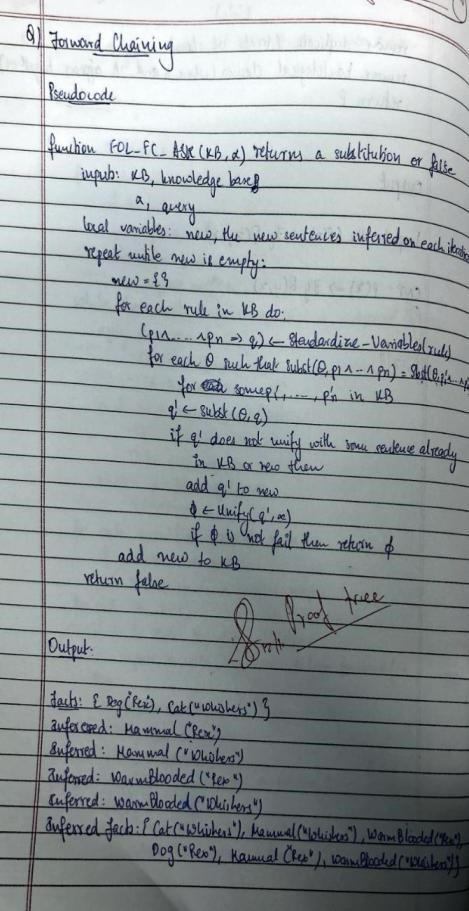 Q) Forward Chaining
Pseudocode
function FOL-FC-ASK(KB, α) returns a substitution or false
inputs: KB, knowledge base
α, query
local variables: new, the new sentences inferred on each iteration
repeat untile new is empty:
new = { }
for each rule in KB do:
(p1∧....∧pn ⇒ q) ← Standardize-Variables(rule)
for each θ such that Subst(θ, p1∧..∧pn) = Subst(θ, p1'∧..∧p
for some p1', ...., p'n in KB
q' ← subst(θ, q)
if q' does not unify with some sentence already
in KB or new then
add q' to new
ϕ ← Unify(q', α)
if ϕ is not fail then return ϕ
add new to KB
return false
Proof tree
Output:
Facts: { Dog("Rex"), Cat("Whishers") }
Inferered: Mammal("Rex")
Inferred: Mammal("Whishers")
Inferred: WarmBlooded("Rex")
Inferred: WarmBlooded("Whishers")
Inferred facts: { Cat("Whishers"), Mammal("Whishers"), WarmBlooded("Rex"),
Dog("Rex"), Mammal("Rex"), WarmBlooded("Whishers")}